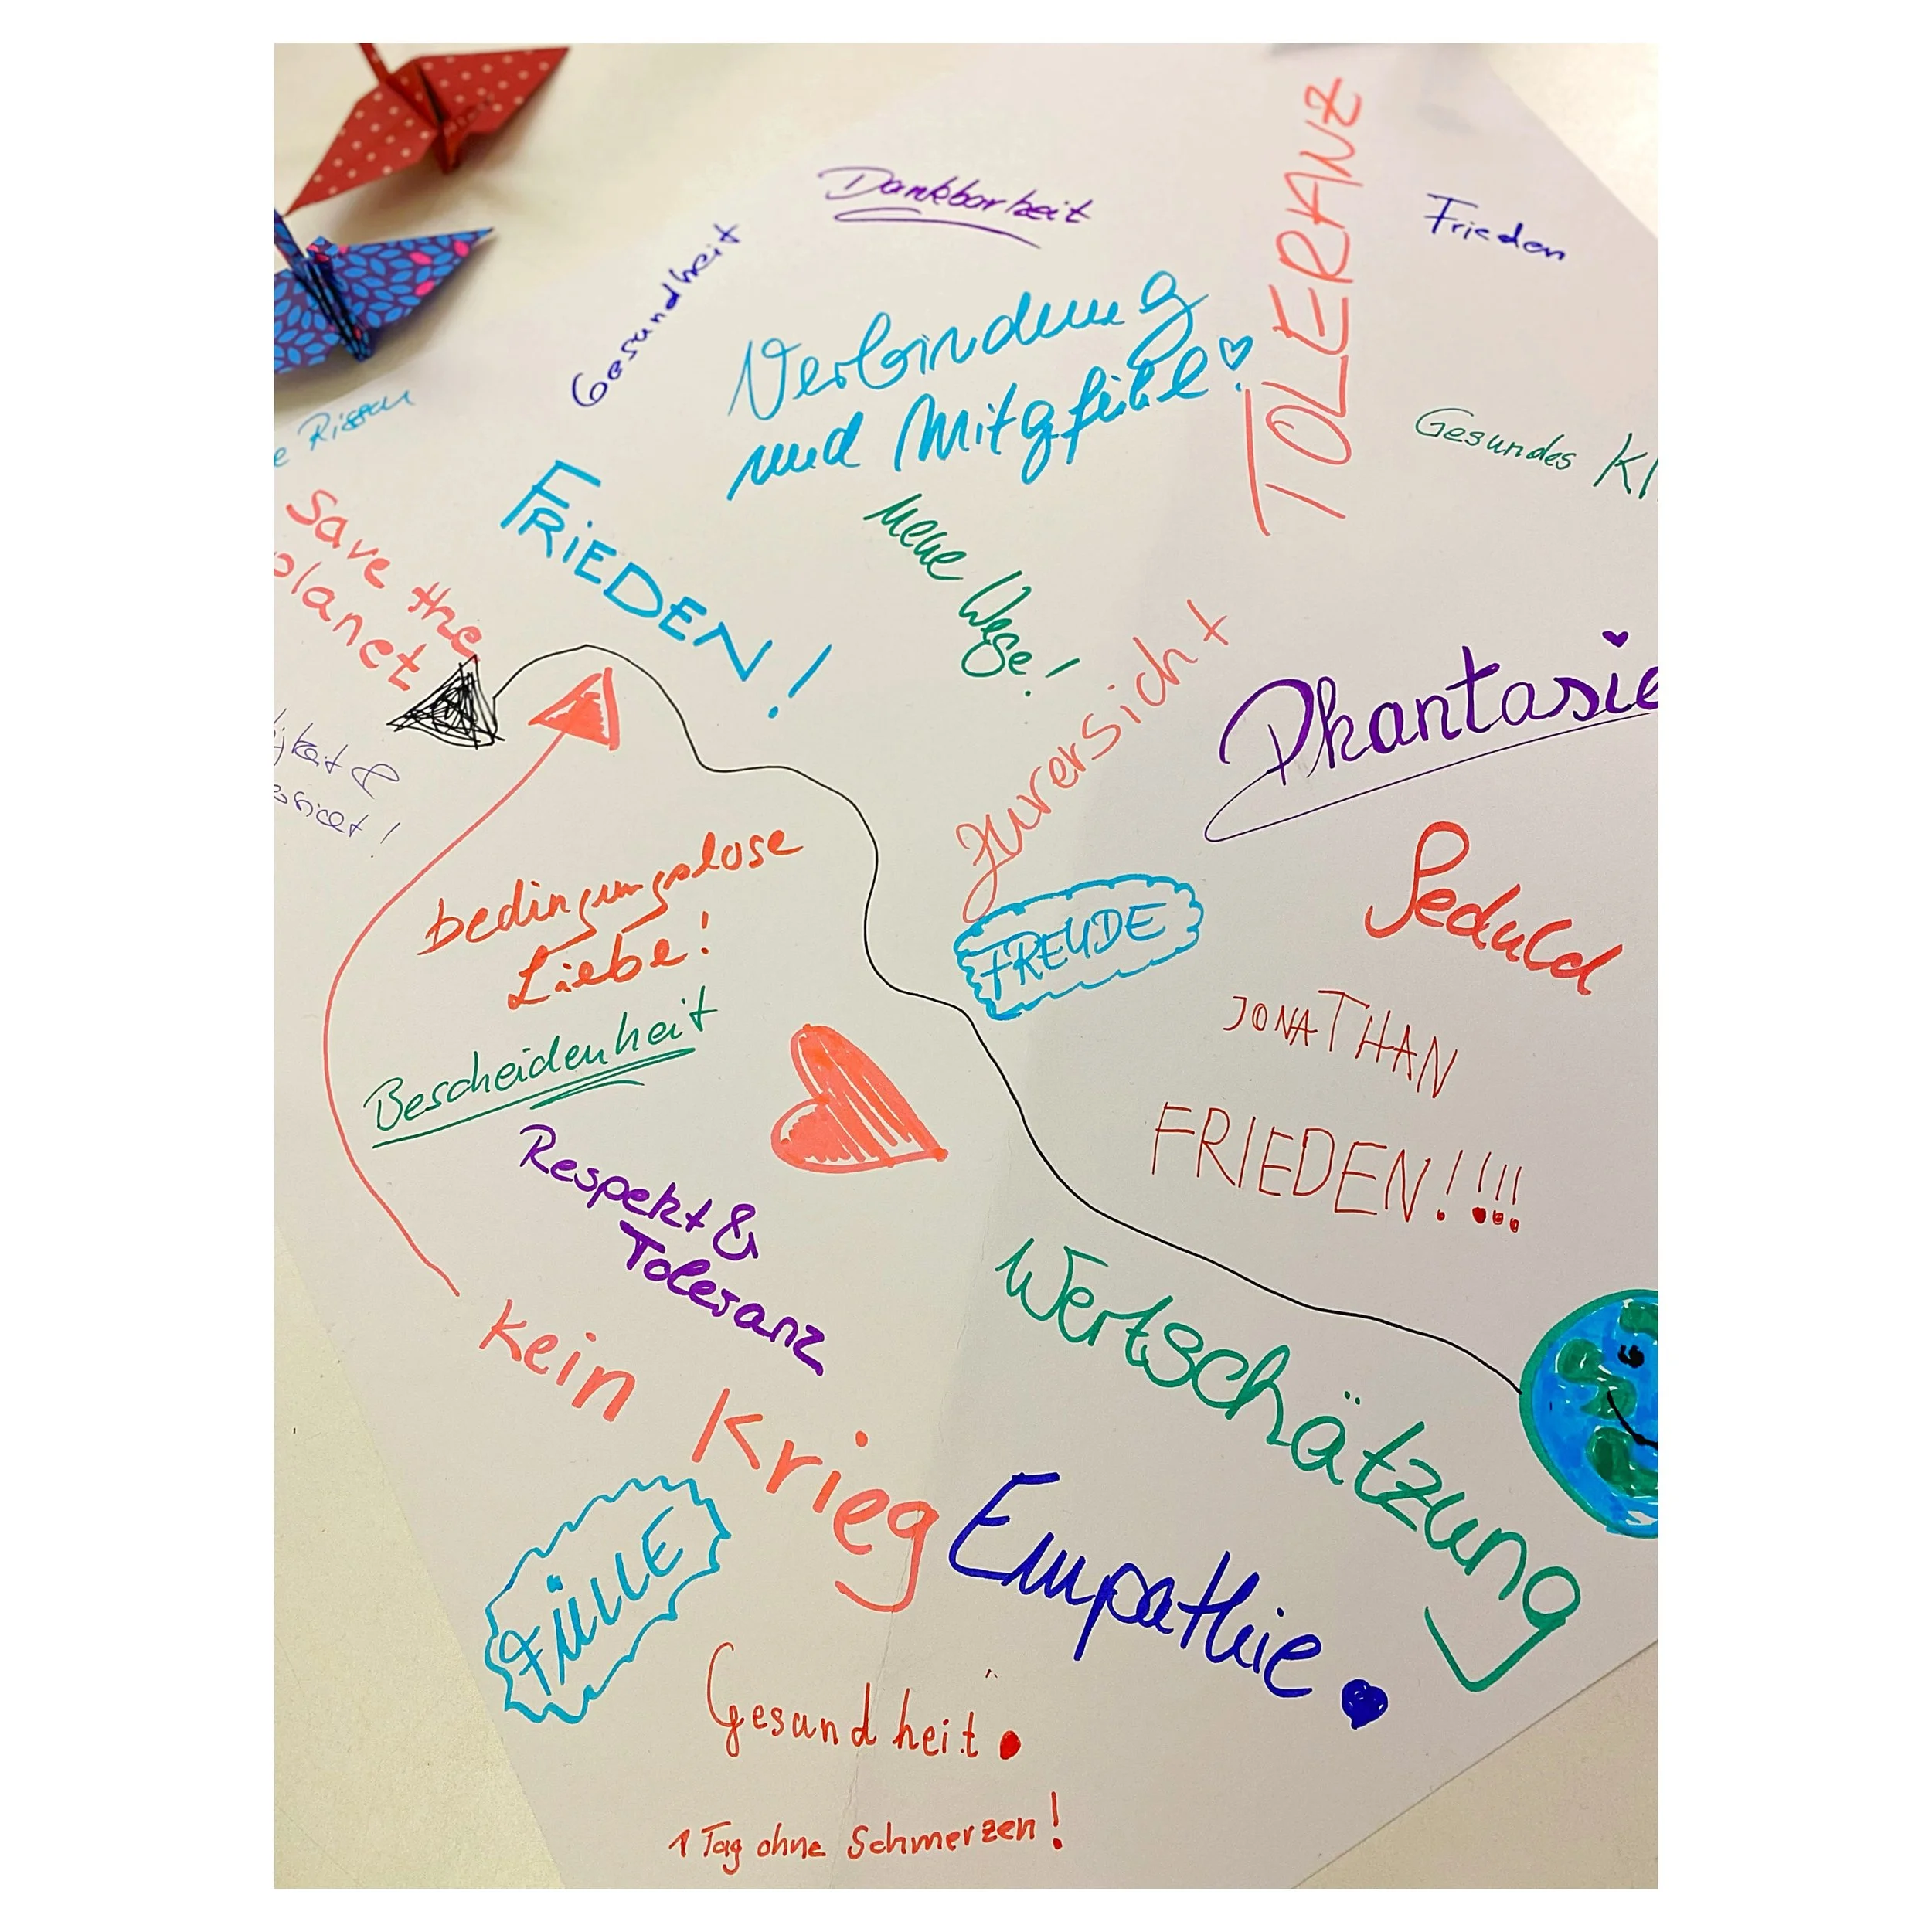 Dankbarkeit
TOLERANZ
Frieden
Gesundheit
Verbindung
und Mitgefühl
Gesundes
Save the
planet
FRIEDEN!
neue Wege!
Zuversicht
Phantasie
bedingungslose
Liebe!
FREUDE
Geduld
JONATHAN
FRIEDEN!!!!
Bescheidenheit
Respekt &
Toleranz
Wertschätzung
kein Krieg
Empathie
FÜLLE
Gesundheit
1 Tag ohne Schmerzen!